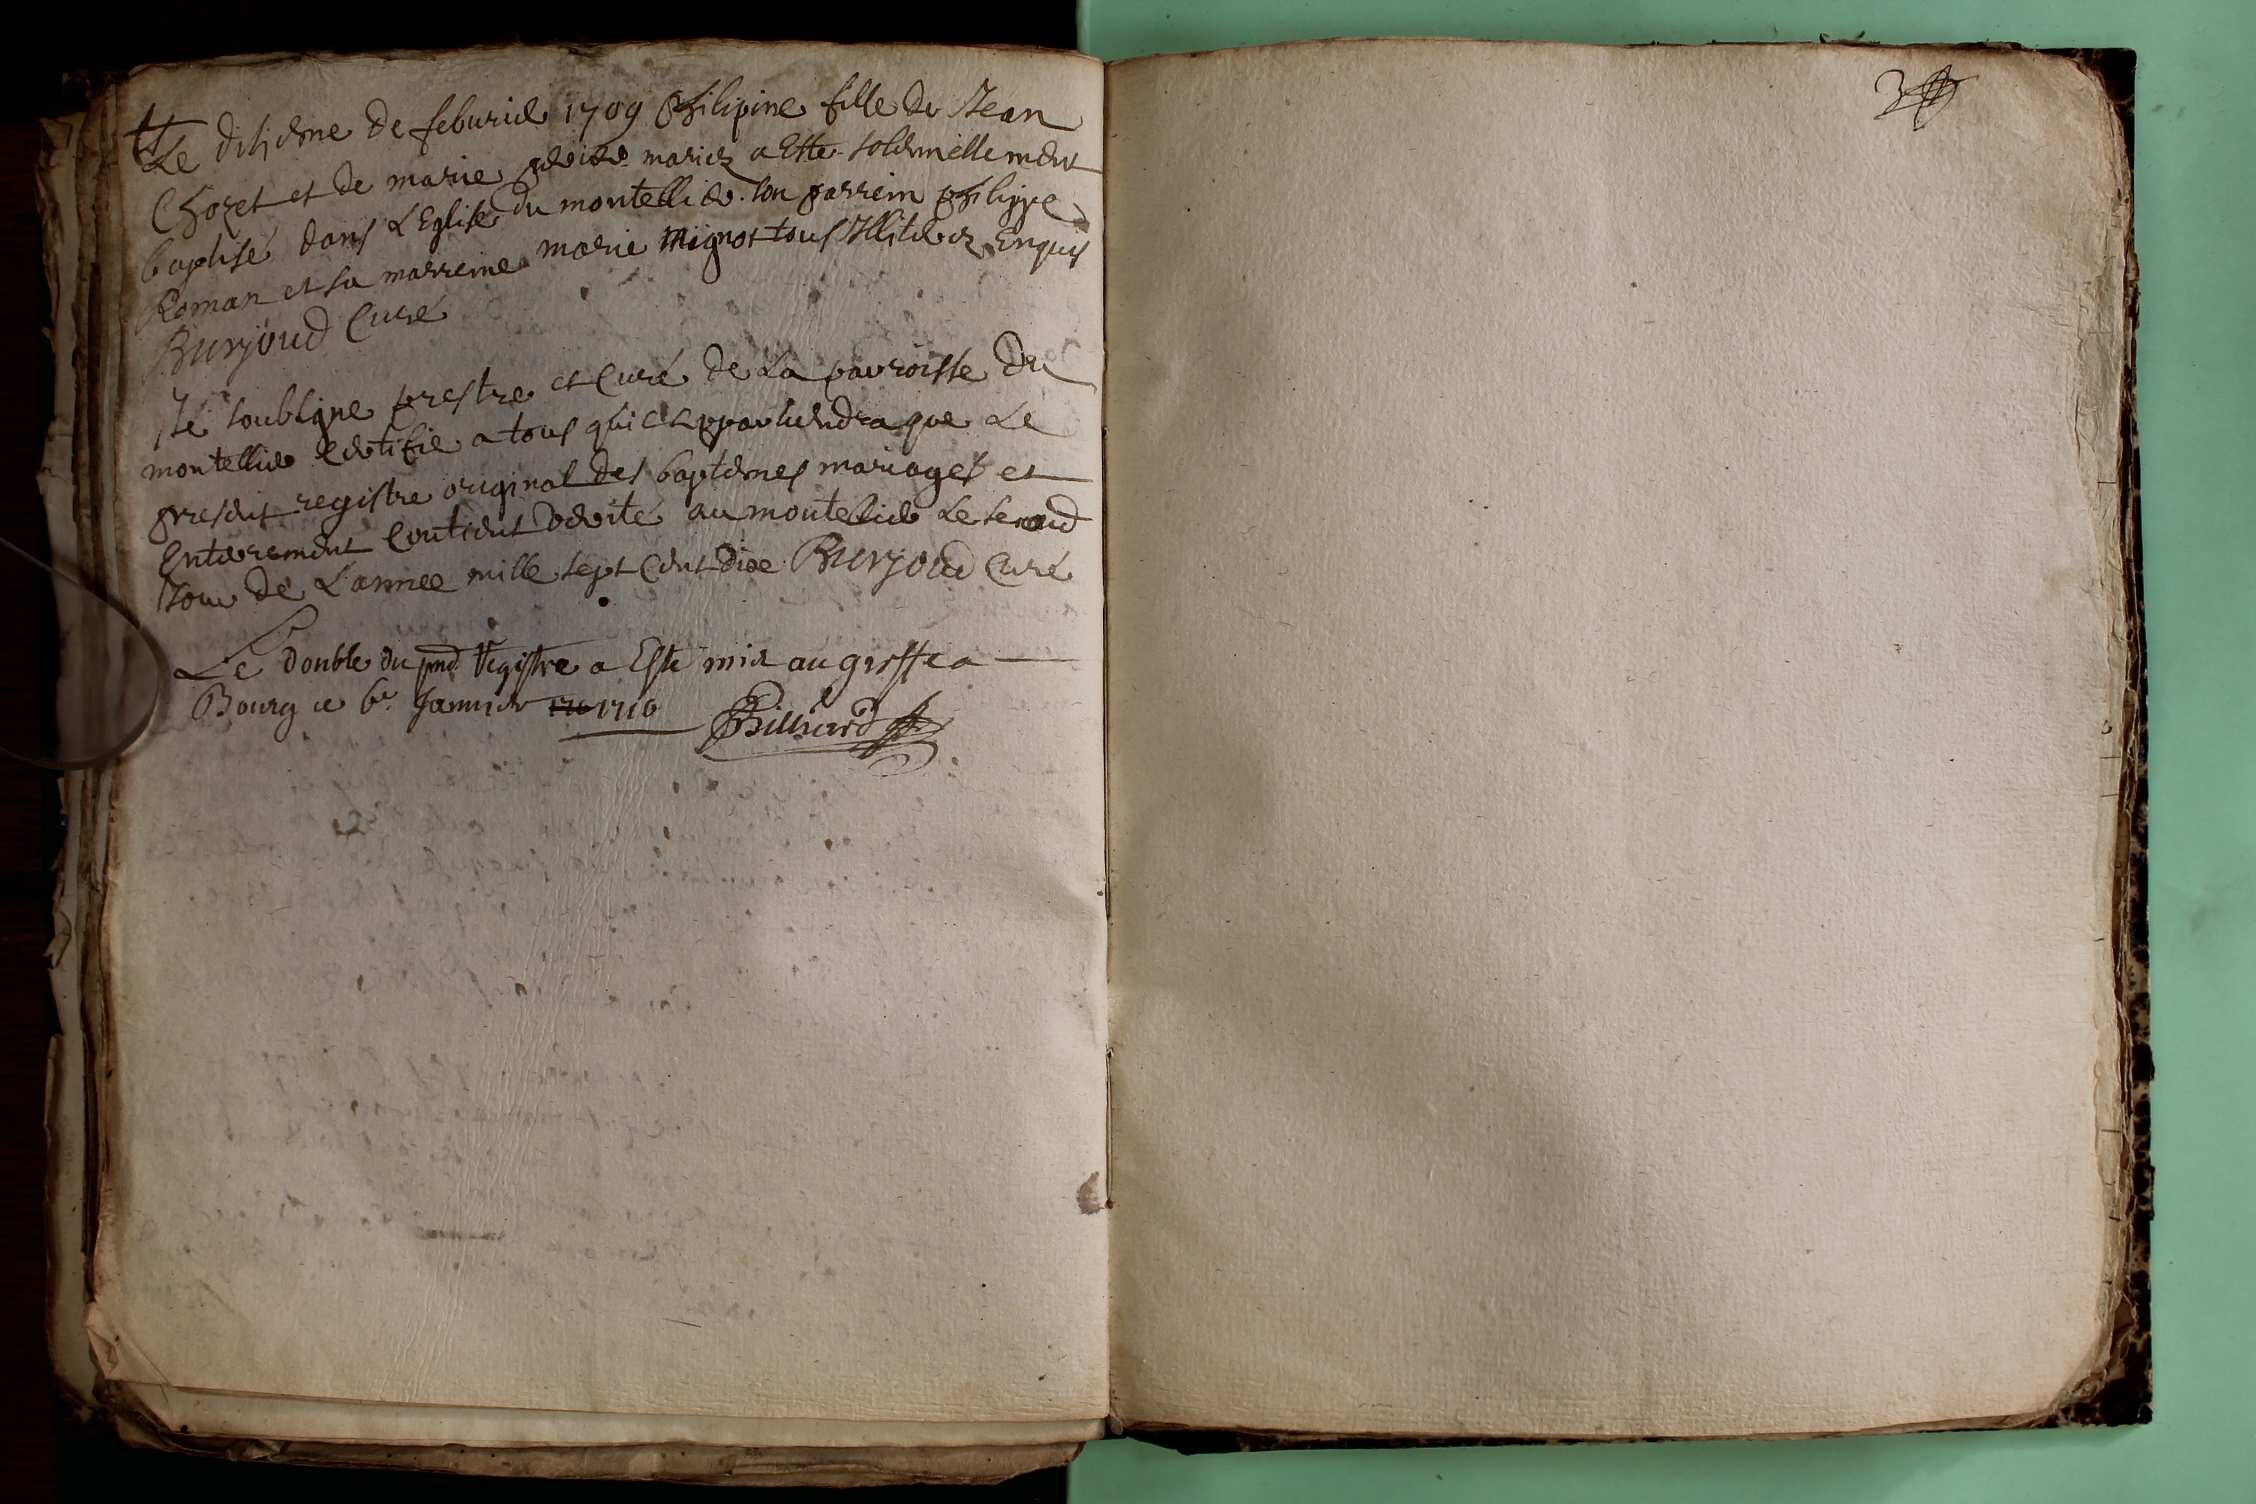 Le disieme de feburier 1709 Philipine fille de Jean
Chozet et de marie mariez a Este solemnellement
baptisé dans L'Eglise du montellier son parrein philippe
Roman et sa marreine marie Mignot tous Illiterez Enquis
Buryoud Curé
Je soubsigne prestre et Curé de La parroisse du
montellier Certifie a tous qu'il appartiendra que Le
present registre original des baptemes mariages et
Enterrement Contient verité au montellier Le second
Jour de L'annee mille sept Cent dix Buryoud Curé
Le double du pnt Registre a Esté mis au greffe a
Bourg ce 6e Janvier 1710
Billiard